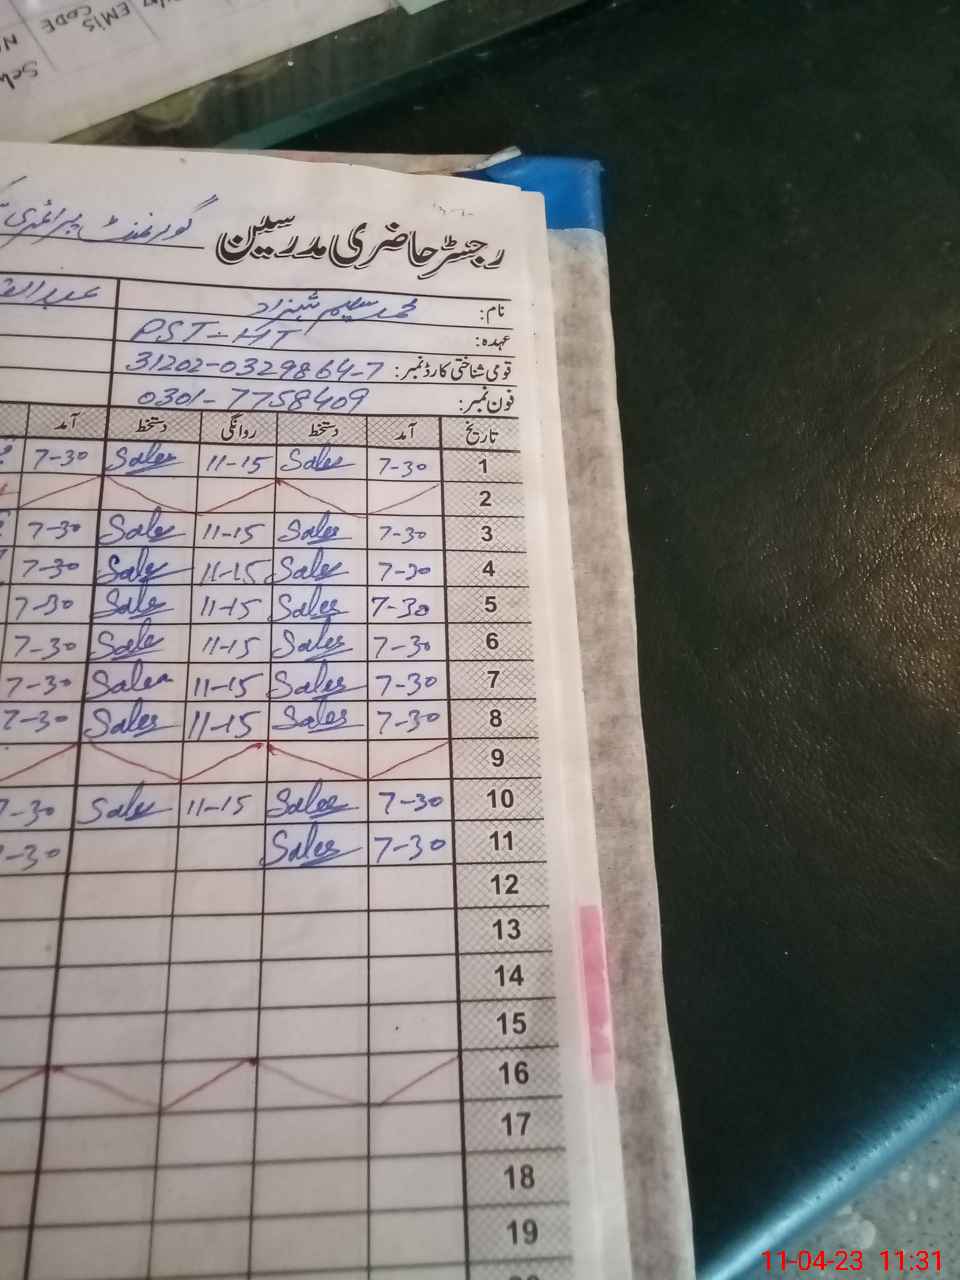 EMIS
CODE
رجسٹر حاضری مدرسین گورنمنٹ پرائمری
نام: محمد سلیم شہزاد
عہدہ: PST-HT
قومی شناختی کارڈ نمبر: 31202-0329864-7
فون نمبر: 0301-7758409
تاریخ آمد دستخط روانگی دستخط آمد
1 7-30 Sales 11-15 Sales 7-30
2
3 7-30 Sales 11-15 Sales 7-30
4 7-30 Sales 11-15 Sales 7-30
5 7-30 Sales 11-15 Sales 7-30
6 7-30 Sales 11-15 Sales 7-30
7 7-30 Sales 11-15 Sales 7-30
8 7-30 Sales 11-15 Sales 7-30
9
10 7-30 Sales 11-15 Sales 7-30
11 7-30 Sales 7-30
12
13
14
15
16
17
18
19
11-04-23 11:31